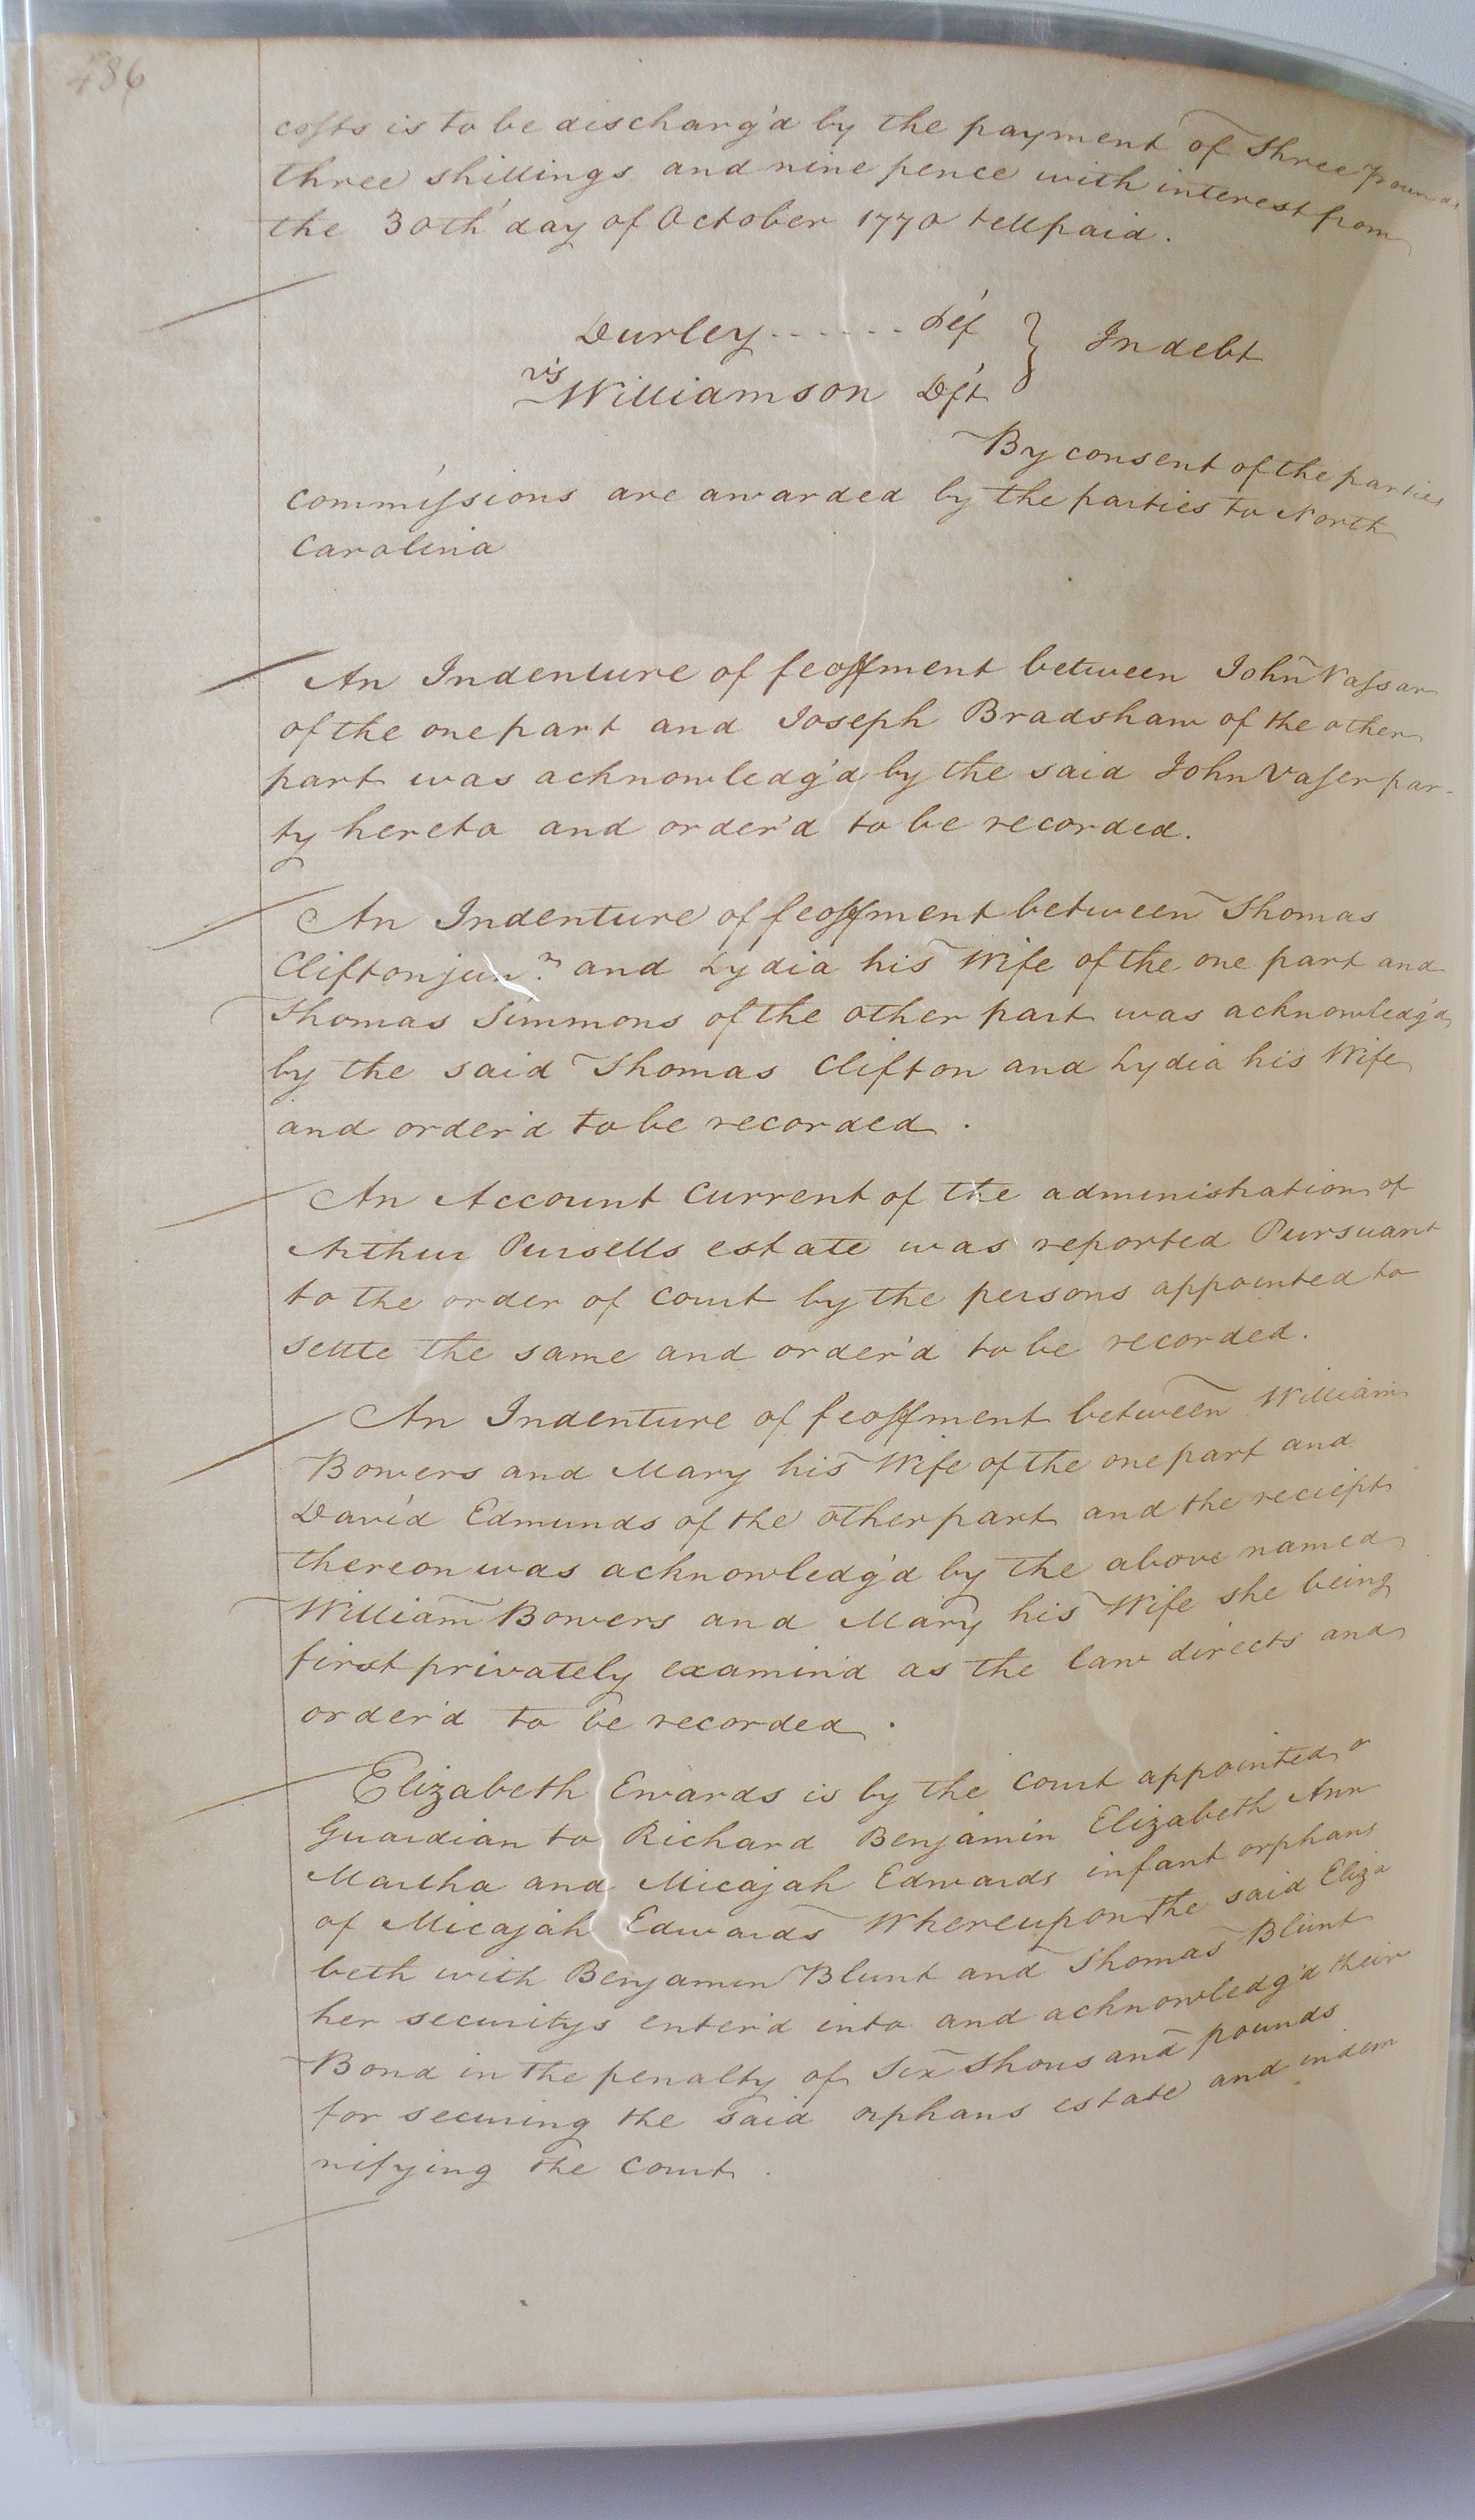 486
costs is to be discharg'd by the payment of Three pounds
three shillings and nine pence with interest from
the 30th day of October 1770 tell paid.
Durley....... Plf } In debt
vs
Williamson Dft
By consent of the parties
commissions are awarded by the parties to North
Carolina
An Indenture of feoffment between John Vassar
of the one part and Joseph Bradshaw of the other
part was acknowledg'd by the said John Vasser par-
ty hereto and order'd to be recorded.
An Indenture of feoffment between Thomas
Clifton junr. and Lydia his Wife of the one part and
Thomas Simmons of the other part was acknowledg'd
by the said Thomas Clifton and Lydia his Wife
and order'd to be recorded.
An Account Current of the administration of
Arthur Pursells estate was reported Pursuant
to the order of Court by the persons appointed to
settle the same and order'd to be recorded.
An Indenture of feoffment between William
Bowers and Mary his Wife of the one part and
David Edmunds of the other part and the reciept
thereon was acknowledg'd by the above named
William Bowers and Mary his Wife she being
first privately examin'd as the law directs and
order'd to be recorded.
Elizabeth Ewards is by the Court appointed
Guardian to Richard Benjamin Elizabeth Ann
Martha and Micajah Edwards infant orphans
of Micajah Edwards Whereupon the said Eliza
beth with Benjamin Blunt and Thomas Blunt
her securitys enter'd into and acknowledg'd their
Bond in the penalty of Six Thousand pounds
for securing the said orphans estate and indem
nifying the Court.